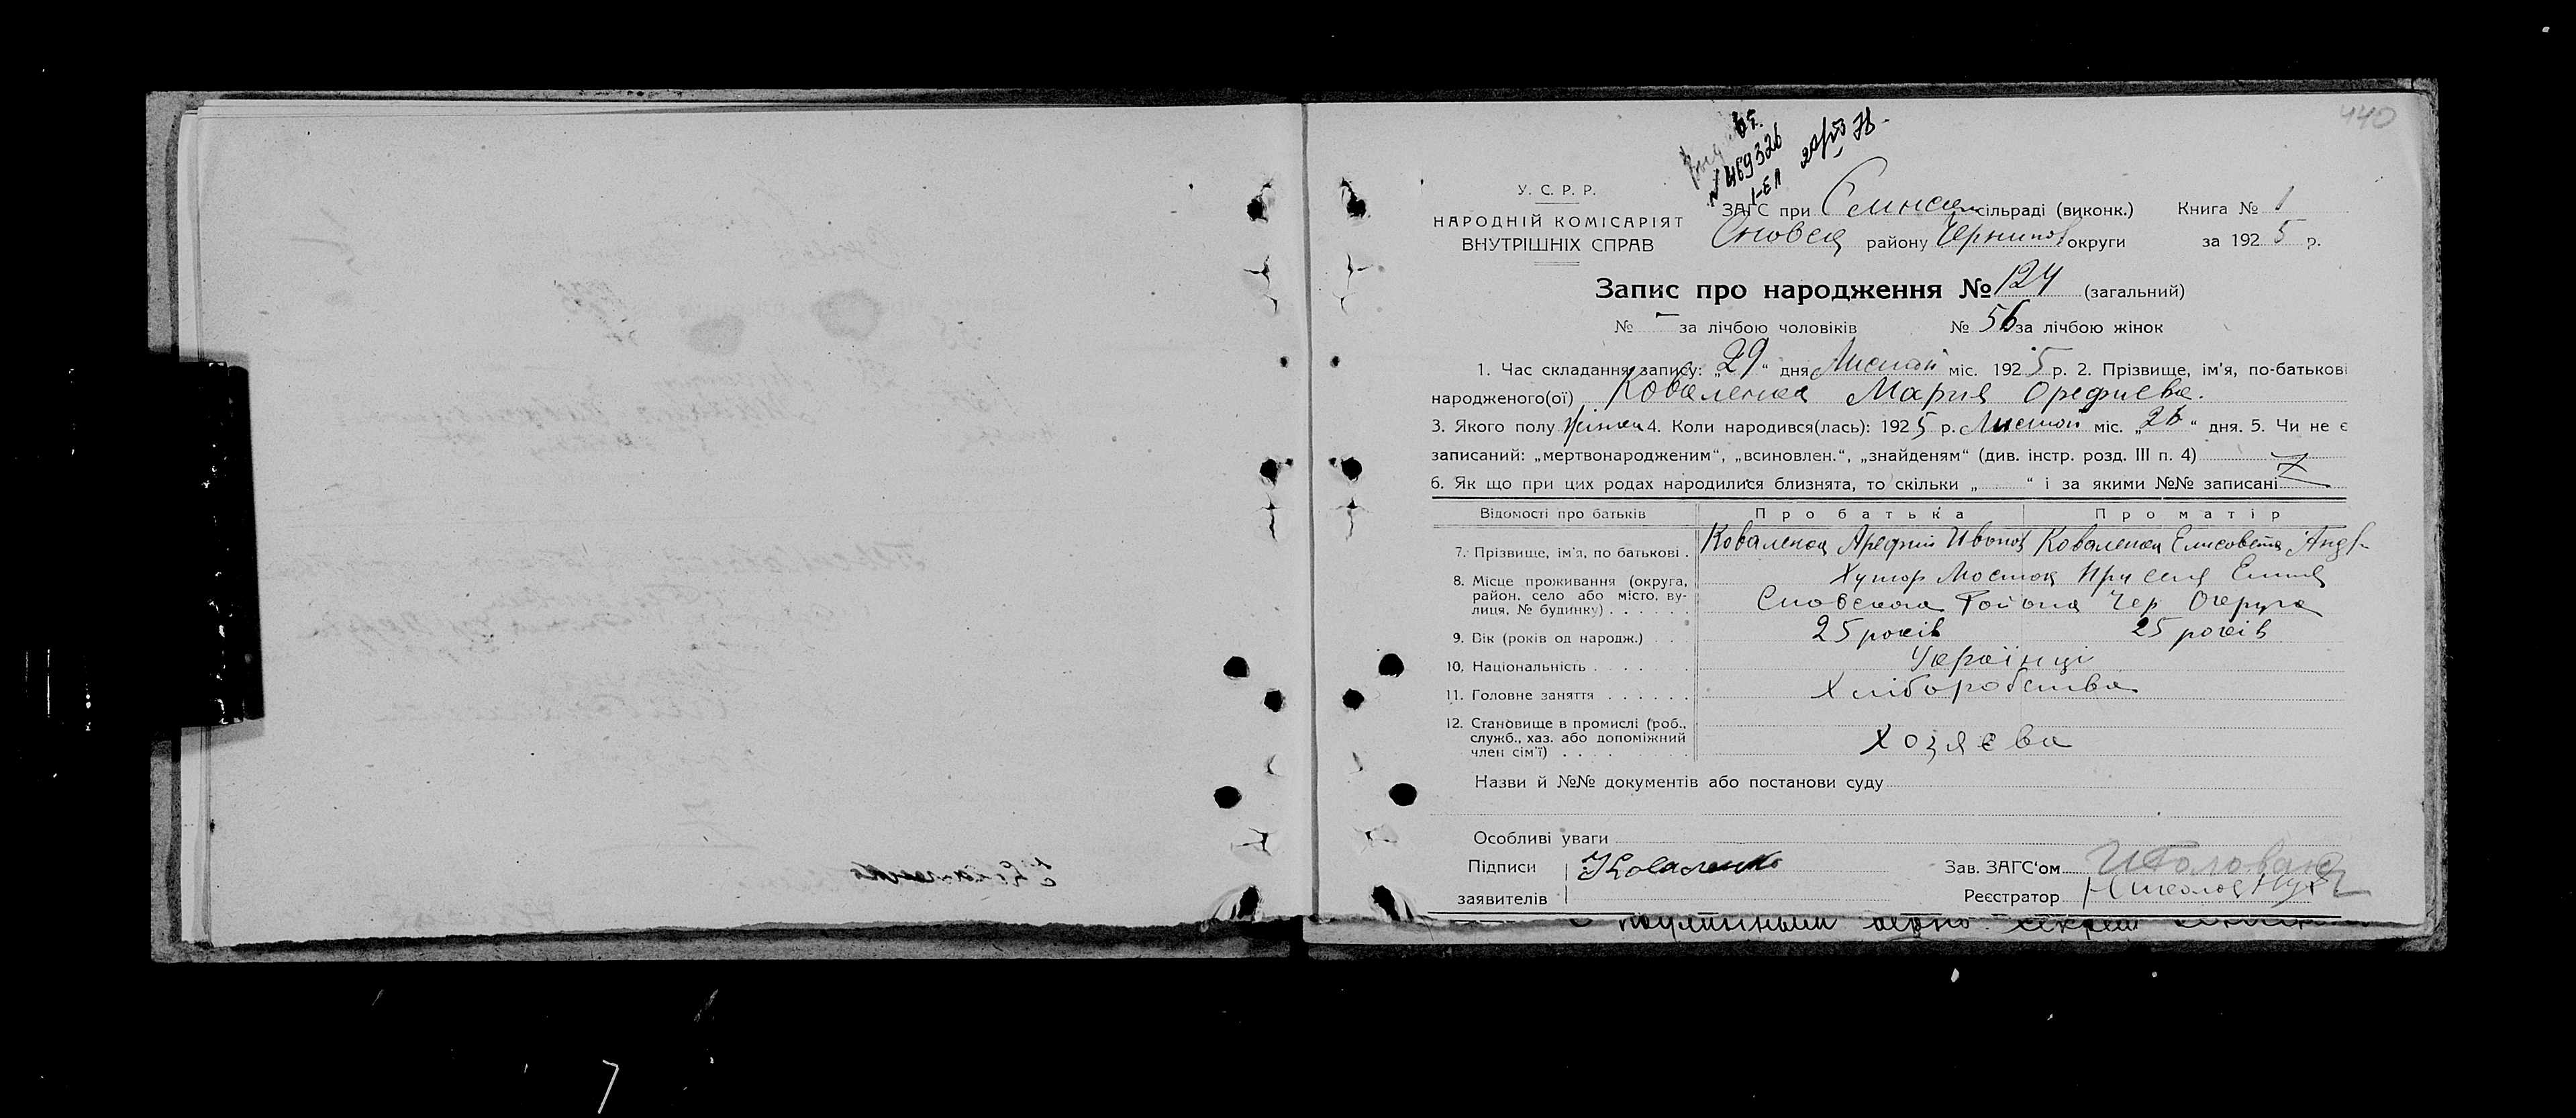 440
№ 469326
У. С. Р. Р.
НАРОДНІЙ КОМІСАРІЯТ
ВНУТРІШНІХ СПРАВ
ЗАГС при сільраді (виконк.) Книга № 1
району округи за 1925 р.
Запис про народження № 124 (загальний)
№ – за лічбою чоловіків № 56 за лічбою жінок
1. Час складання запису: „29“ дня Листоп міс. 1925 р. 2. Прізвище, ім'я, по-батькові
народженого(ої) Коваленка Мария Орефиева.
3. Якого полу 4. Коли народився(лась): 1925 р. Листоп міс. „26“ дня. 5. Чи не є
записаний: „мертвонародженим“, „всиновлен.“, „знайденям“ (див. інстр. розд. III п. 4)
6. Як що при цих родах народилися близнята, то скільки „ “ і за якими №№ записані
Відомості про батьків Про батька Про матір
7. Прізвище, ім'я, по батькові . Коваленка Арефий Иванов Коваленка Елисовета Анд
8. Місце проживання (округа, Хутор Мосток При селя
район, село або місто, ву- Сновского Района Чер Округа
лиця, № будинку) . . . . . .
9. Вік (років од народж.) . . 25 років 25 років
10. Національність . . . . . . Українці
11. Головне заняття . . . . . . Хліборобства
12. Становище в промислі (роб.,
служб., хаз. або допоміжний Хозяєва
член сім'ї) . . . .
Назви й №№ документів або постанови суду
Особливі уваги
Підписи Коваленко Зав. ЗАГС'ом
заявителів Реєстратор